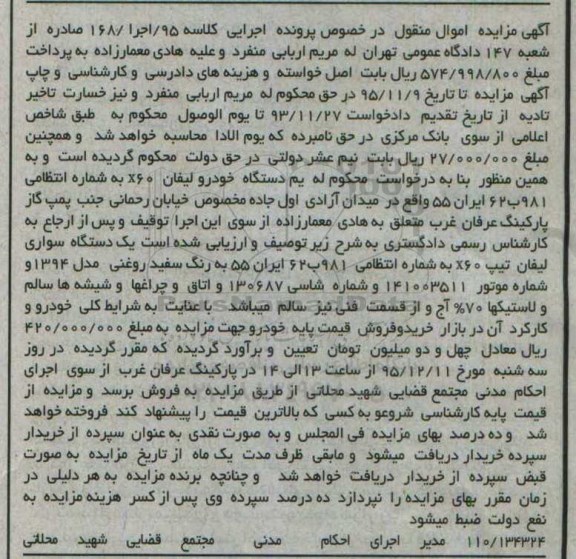 آگهی مزایده اموال منقول در خصوص پرونده اجرایی کلاسه ۹۵/اجرا /۱۶۸ صادره از
شعبه ۱۴۷ دادگاه عمومی تهران له مریم اربابی منفرد و علیه هادی معمارزاده به پرداخت
مبلغ ۵۷۴/۹۹۸/۸۰۰ ریال بابت اصل خواسته و هزینه های دادرسی و کارشناسی و چاپ
آگهی مزایده تا تاریخ ۹۵/۱۱/۹ در حق محکوم له مریم اربابی منفرد و نیز خسارت تاخیر
تادیه از تاریخ تقدیم دادخواست ۹۳/۱۱/۲۷ تا یوم الوصول محکوم به طبق شاخص
اعلامی از سوی بانک مرکزی در حق نامبرده که یوم الادا محاسبه خواهد شد و همچنین
مبلغ ۲۷/۰۰۰/۰۰۰ ریال بابت نیم عشر دولتی در حق دولت محکوم گردیده است و به
همین منظور بنا به درخواست محکوم له یم دستگاه خودرو لیفان x۶۰ به شماره انتظامی
۹۸۱ب۶۲ ایران ۵۵ واقع در میدان آزادی اول جاده مخصوص خیابان رحمانی جنب پمپ گاز
پارکینگ عرفان غرب متعلق به هادی معمارزاده از سوی این اجرا توقیف و پس از ارجاع به
کارشناس رسمی دادگستری به شرح زیر توصیف و ارزیابی شده است یک دستگاه سواری
لیفان تیپ x۶۰ به شماره انتظامی ۹۸۱ب۶۲ ایران ۵۵ به رنگ سفید روغنی مدل ۱۳۹۴ و
شماره موتور ۱۴۱۰۰۳۵۱۱ و شماره شاسی ۱۳۰۶۸۷ و اتاق و چراغها و شیشه ها سالم
و لاستیکها ۷۰% آج و از قسمت فنی نیز سالم میباشد با عنایت به شرایط کلی خودرو و
کارکرد آن در بازار خریدوفروش قیمت پایه خودرو جهت مزایده به مبلغ ۴۲۰/۰۰۰/۰۰۰
ریال معادل چهل و دو میلیون تومان تعیین و برآورد گردیده که مقرر گردیده در روز
سه شنبه مورخ ۹۵/۱۲/۱۱ از ساعت ۱۳ الی ۱۴ در پارکینگ عرفان غرب از سوی اجرای
احکام مدنی مجتمع قضایی شهید محلاتی از طریق مزایده به فروش برسد و مزایده از
قیمت پایه کارشناسی شروعو به کسی که بالاترین قیمت را پیشنهاد کند فروخته خواهد
شد و ده درصد بهای مزایده فی المجلس و به صورت نقدی به عنوان سپرده از خریدار
سپرده خریدار دریافت میشود و مابقی ظرف مدت یک ماه از تاریخ مزایده به صورت
قبض سپرده از خریدار دریافت خواهد شد و چنانچه برنده مزایده به هر دلیلی در
زمان مقرر بهای مزایده را نپردازد ده درصد سپرده وی پس از کسر هزینه مزایده به
نفع دولت ضبط میشود
۱۱۰/۱۳۴۳۲۴ مدیر اجرای احکام مدنی مجتمع قضایی شهید محلاتی